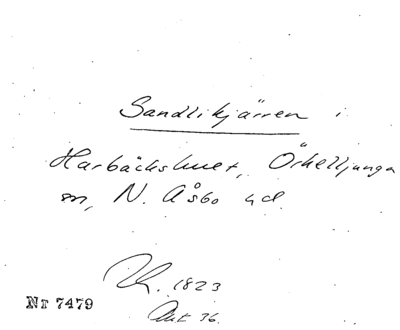 Sandlikjärren i
Harbäckshult, Örkelljunga
sn, N. Åsbo hd.
Th. 1823
Akt 36.
Nr 7479